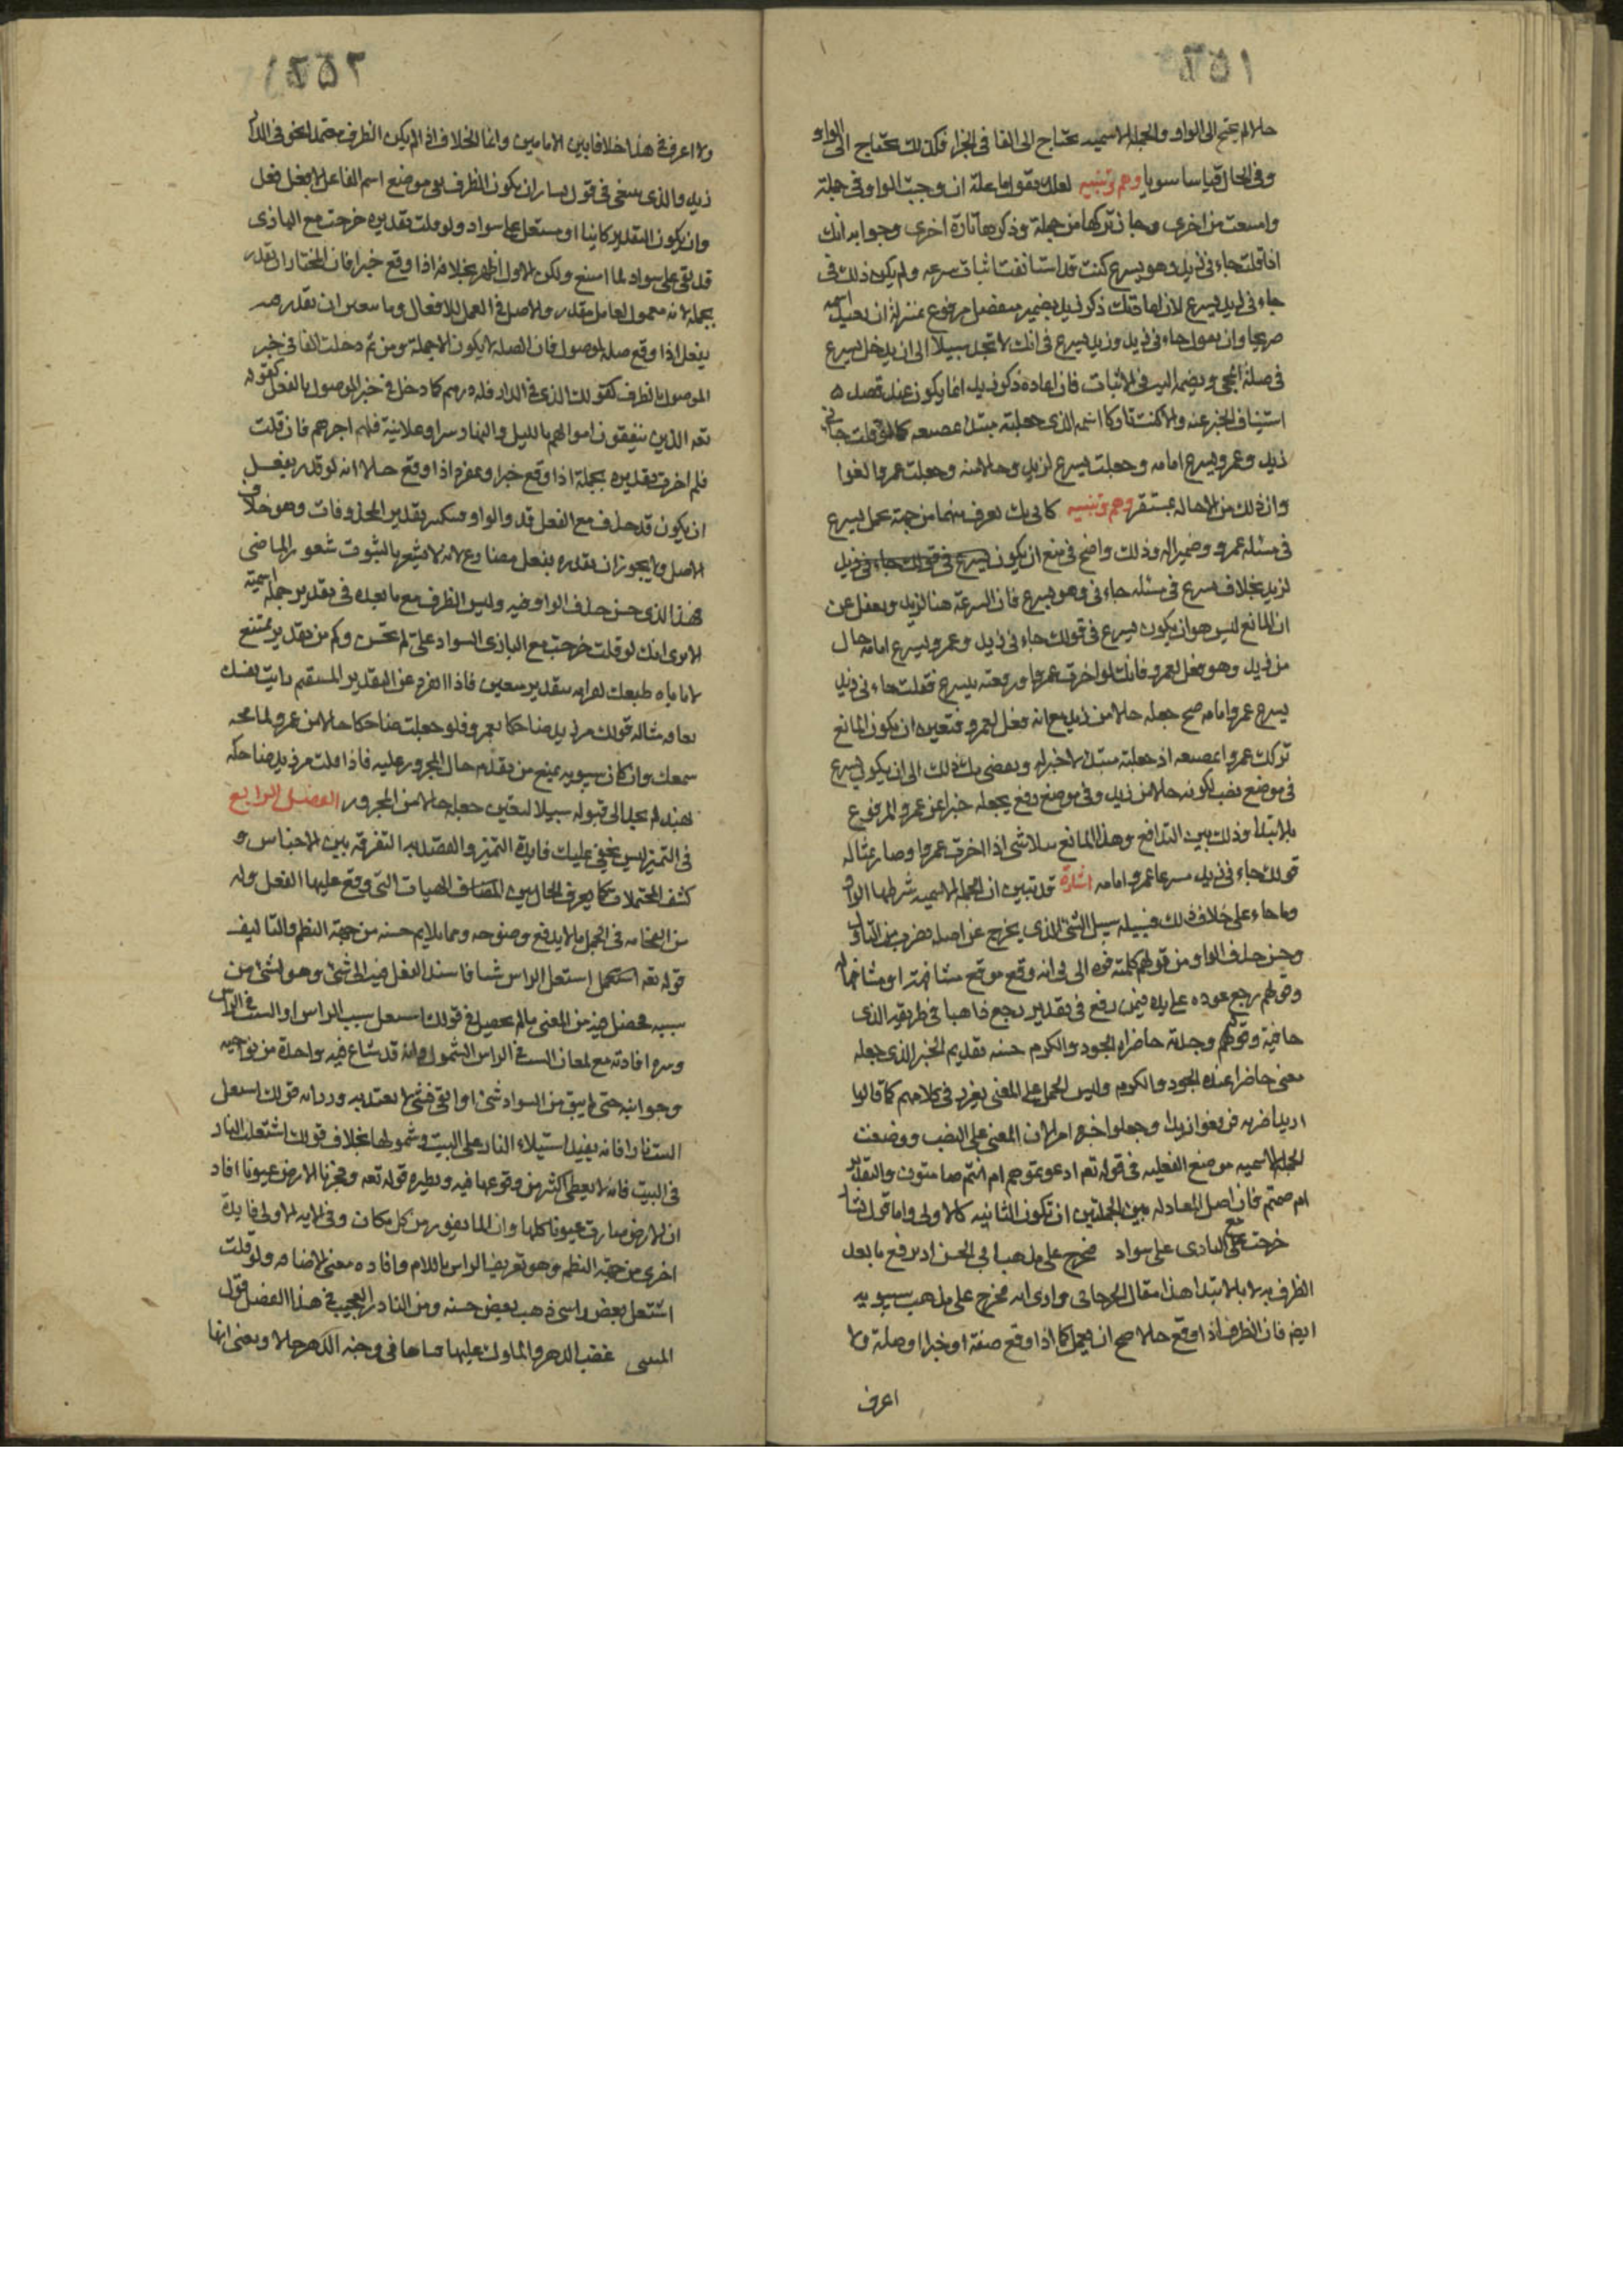 ١٥٥١
حالا لم يحتج الى الواو والجملة الاسميه تحتاج الى الفا فى الجزا فكذلك تحتاج الى الواو
وفى الحال قياسا سويا وهم وتنبيه لعلك تقول ما علة ان وجبت الواو فى جملة
وامتنعت من اخرى وجاز تركها من جملة وذكرها تارة اخرى وجوابه انك
اذا قلت جاءنى زيد وهو يسرع كنت قد استانفت اثبات سرعه ولم يكن ذلك فى
جاءنى زيد يسرع لان اعادتك ذكر زيد بضمير منفصل مرفوع بمنزلة ان تعيد اسمه
صريحا وان تقول جاءنى زيد وزيد يسرع فى انك لا تجد سبيلا الى ان يدخل يسرع
فى صلة المجى ويضمه اليه فى الاثبات فان اعادة ذكر زيد انما يكون عند قصد
استيناف الخبر عنه والا كنت تاركا اسمه الذى جعلته مبتدا بمضيعه كما لو قلت جانى
زيد وعمرو يسرع امامه وجعلت يسرع لزيد وحالا منه وجعلت عمروا لغوا
وان ذلك من الاحاله بمستقر وهم وتنبيه كانى بك تعرف منهما من جهة عمل يسرع
فى مسئله عمرو وضميرا له وذلك واضح فى منع ان يكون يسرع فى قولك جاءنى زيد
لزيد بخلاف يسرع فى مسئله جاءنى وهو يسرع فان السرعة هنا لزيد وتغفل عن
ان المانع ليس هو ان يكون يسرع فى قولك جاءنى زيد وعمرو يسرع امامه حال
من زيد وهو فعل لعمرو فانك لو اخرت عمروا ورفعته بيسرع فقلت جاءنى زيد
يسرع عمرو امامه صح جعله حالا من زيد مع انه فعل لعمرو فتعين ان يكون المانع
تركك عمروا بمضيعه اذ جعلته مبتدا لا خبر له ويفضى بك ذلك الى ان يكون يسرع
فى موضع نصب لكونه حالا من زيد وفى موضع رفع بجعله خبرا عن عمرو المرفوع
بالابتدا وذلك بين التدافع وهذا المانع يتلاشى اذا اخرت عمروا وصار بمثاله
قولك جاءنى زيد مسرعا عمرو امامه اشارة قد تبين ان الجملة الاسميه شرطها الواو
وما جاء على خلاف ذلك فسبيله سبيل الشئ الذى يخرج عن اصله بضرب من التاويل
وحسن حذف الواو من قولهم كلمته فوه الى فى انه وقع موقع مشافهة او مشافها له
وقولهم رجع عوده على بدئه فيمن رفع فى تقدير رجع ذاهبا فى طريقه الذى
جا فيه وقولهم وجدته حاضراه الجود والكرم حسنه تقديم الخبر الذى جعله
معنى حاضرا عنده الجود والكرم وليس الحمل على المعنى بغريب فى كلامهم كما قالوا
زيد اضربه فرفعوا زيدا وجعلوا خبره امرا لان المعنى على النصب ووضعت
الجملة الاسميه موضع الفعليه فى قوله تعم ادعوتموهم ام انتم صامتون والتقدير
ام صمتم فان اصل المعادله بين الجملتين ان تكون الثانيه كالاولى واما قول بشار
خرجت مع البازى على سواد فخرج على مذهب ابى الحسن اذ يرفع ما بعد
الظرف به لا بالابتدا هذا مقال الجرجانى وارى انه مخرج على مذهب سيبويه
ايضا فان الظرف اذا وقع حالا صح ان يعمل كما اذا وقع صفة او خبرا او صلة ولا
اعرف
١٥٥٢
ولا اعرف فى هذا خلافا بين الامامين وانما الخلاف اذا لم يكن الظرف معتمدا نحو فى الدار
زيد والذى ينبغى فى قول بشار ان يكون الظرف فى موضع اسم الفاعل لا فعل فعل
وان يكون التقدير كاينا او مستعل على سواد ولو قلت تقديره خرجت مع البازى
قد بقى على سواد لما امتنع ولكن الاول اظهر بخلافه اذا وقع خبرا فان المختار ان تقدر
بجملة لانه معمول لعامل مقدر والاصل فى العمل للافعال وما تعين ان تقدره
بفعل اذا وقع صله لموصول فان الصله لا يكون الا جملة ومن ثم دخلت الفا فى خبر
الموصول بالظرف كقولك الذى فى الدار فله درهم كما دخل فى خبر الموصول بالفعل كقوله
تعه الذين ينفقون اموالهم بالليل والنهار سرا وعلانية فلهم اجرهم فان قلت
فلم اخرت تقديره بجملة اذا وقع خبرا وبمفرد اذا وقع حالا انه لو قدر بفعل وجب
ان يكون قد حذف مع الفعل قد والواو فتكثر بتقدير المحذوفات وهو خلاف
الاصل ولا يجوز ان تقدره بفعل مضارع لانه لا يشعر بالثبوت شعور الماضى
فهذا الذى حسن حذف الواو فيه وليس الظرف مع ما بعده فى تقدير جملة اسمية
الا ترى انك لو قلت خرجت مع البازى السواد على لم تحسن وكم من تقدير يمتنع
لاباباه طبعك لمراه بتقدير معين فاذا انفرد عن التقدير المستقيم رايت نفسك
تعافه مثاله قولك مر زيد ضاحكا بعمرو فلو جعلت ضاحكا حالا من عمرو لما مجه
سمعك وان كان سيبويه يمنع من تقدم حال المجرور عليه فاذا قلت مر زيد ضاحكه
بهند لم تجد الى قبوله سبيلا لتعين جعله حالا من المجرور الفصل الرابع
فى التمييز ليس يخفى عليك فايدة التمييز والقصد به التفرقه بين الاجناس و
كشف المحتملات كما يعرف الحال بين اكتناف الهيات التى وقع عليها الفعل وله
من الفخامه فى الجمل ما لا يدفع وضوحه ومما يلايم حسنه من جهة النظم والتاليف
قوله تعه اشتعل الراس شيبا فاسند الفعل فيه الى شئ وهو لشئ من
سببه فحصل فيه من المعنى ما لم يحصل فى قولك اشتعل شيب الراس او الشيب فى الراس
وسره افادته مع لمعان الشيب فى الراس الشمول وانه قد شاع فيه واخذه من نواحيه
وجوانبه حتى لم يبق من السواد شئ او بقى شئ لا يعتد به ووزانه قولك اشتعل
البيت نارا فانه يفيد استيلاء النار على البيت وشمولها بخلاف قولك اشتعلت النار
فى البيت فانه لا يعطى اكثر من وقوعها فيه ونظيره قوله تعه وفجرنا الارض عيونا افاد
ان الارض صارت عيونا كلها وان الما يفور من كل مكان وفى الايه الاولى فايدة
اخرى من جهة النظم وهو تعريف الراس باللام وافاده معنى الاضافه ولو قلت
اشتعل بعض راسى ذهب بعض حسنه ومن النادر العجيب فى هذا الفصل قول
المتنبى غضب الدهر والملوك عليها فبناها فى وجنة الدهر خالا ويعنى انها